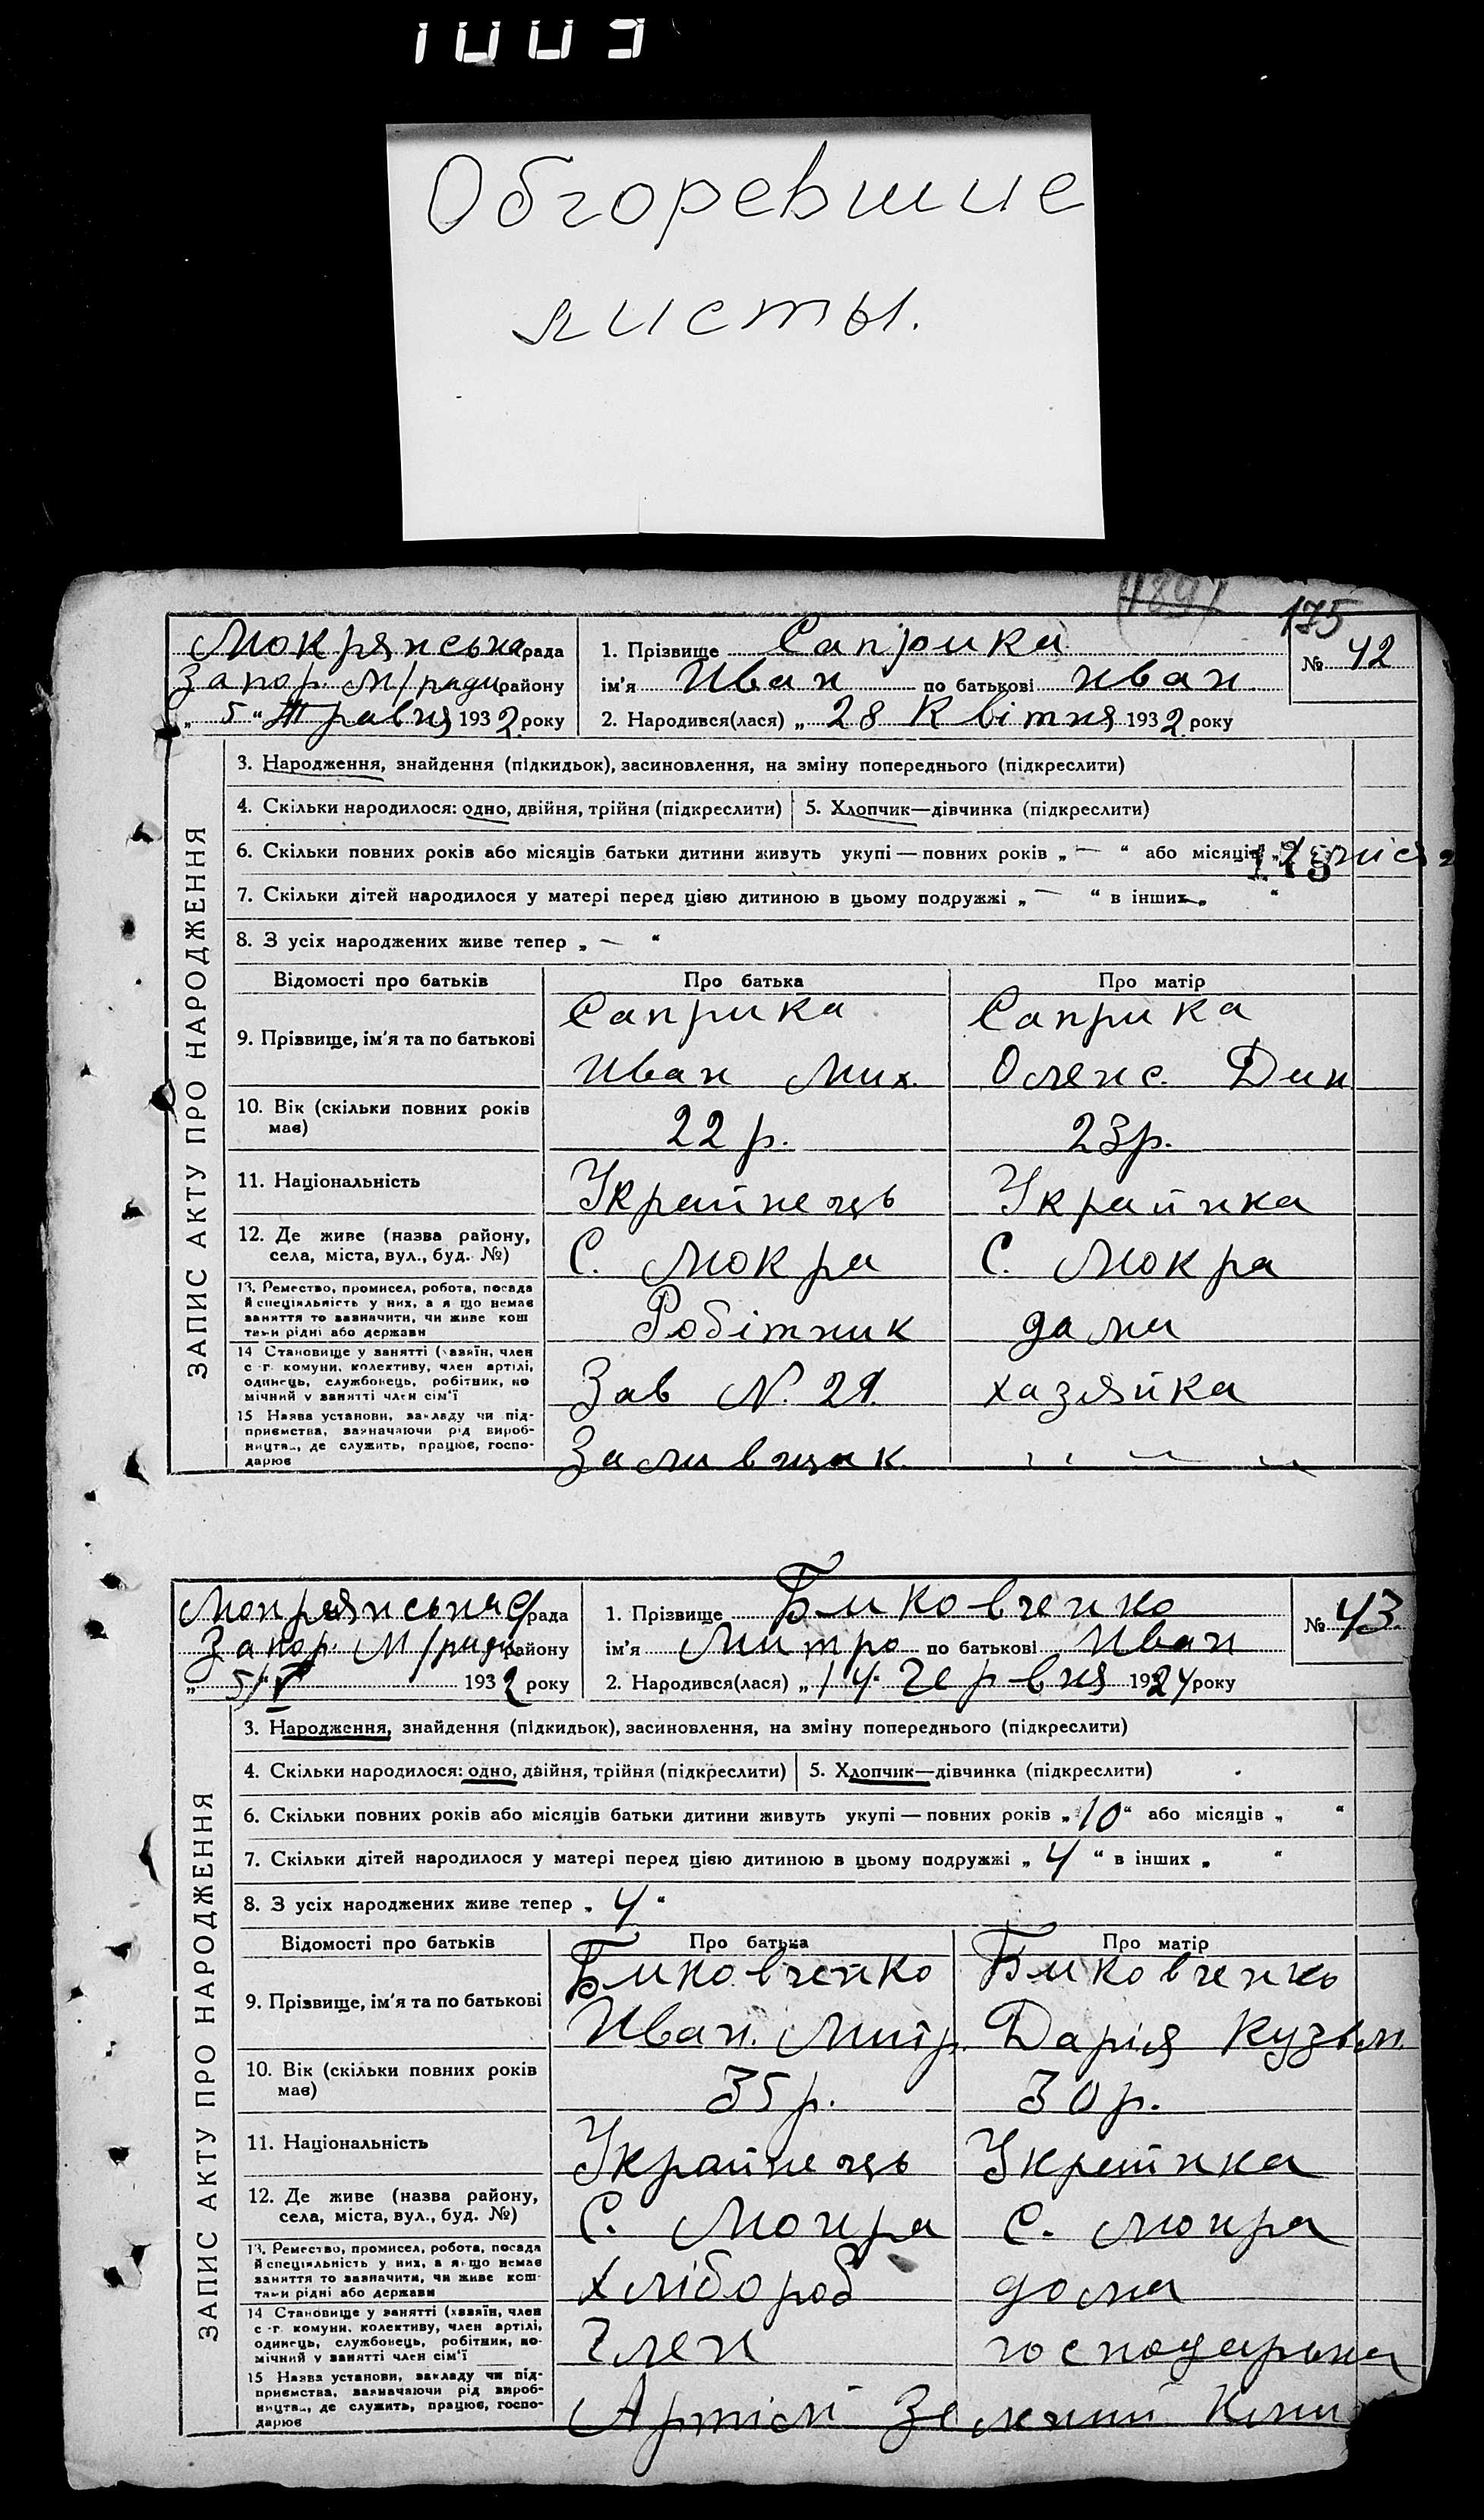 1009
Обгоревшие
листы.
1891
175
Мокрянська рада
Запор М/ради району
„ 5 “ Травня 1932 року
1. Прізвище Саприка
ім'я Иван по батькові Иван.
2. Народився(лася) „ 28 Квітня 1932 року
№ 42
ЗАПИС АКТУ ПРО НАРОДЖЕННЯ
3. Народження, знайдення (підкидьок), засиновлення, на зміну попереднього (підкреслити)
4. Скільки народилося: одно, двійня, трійня (підкреслити) 5. Хлопчик—дівчинка (підкреслити)
6. Скільки повних років або місяців батьки дитини живуть укупі — повних років „ — “ або місяців „
175
7. Скільки дітей народилося у матері перед цією дитиною в цьому подружжі „ — “ в інших „ — “
8. З усіх народжених живе тепер „ — “
Відомості про батьків Про батька Про матір
9. Прізвище, ім'я та по батькові Саприка Саприка
Иван Мих. Олекс. Дик
10. Вік (скільки повних років має) 22 р. 23р.
11. Національність Украйнець Украйнка
12. Де живе (назва району, села, міста, вул., буд. №) С. Мокра С. Мокра
13. Ремество, промисел, робота, посада й спеціяльність у них, а якщо немає заняття то зазначити, чи живе коштами рідні або держави Робітник дома
14 Становище у занятті (хазяїн, член с-г. комуни, колективу, член артілі, одинець, службонець, робітник, помічний у занятті член сім'ї Зав N. 29. хазяйка
15 Назва установи, закладу чи підприємства, зазначаючи рід виробництва, де служить, працює, господарює Заливщик.
Мокрянська С/рада
Запор. М/ради району
„ 5/V 1932 року
1. Прізвище Биковченко
ім'я Митро по батькові Иван
2. Народився(лася) „ 14 “ Червня 1924 року
№ 43.
ЗАПИС АКТУ ПРО НАРОДЖЕННЯ
3. Народження, знайдення (підкидьок), засиновлення, на зміну попереднього (підкреслити)
4. Скільки народилося: одно, двійня, трійня (підкреслити) 5. Хлопчик—дівчинка (підкреслити)
6. Скільки повних років або місяців батьки дитини живуть укупі — повних років „ 10 “ або місяців „ “
7. Скільки дітей народилося у матері перед цією дитиною в цьому подружжі „ 4 “ в інших „ “
8. З усіх народжених живе тепер „ 4 “
Відомості про батьків Про батька Про матір
9. Прізвище, ім'я та по батькові Биковченко Биковченко
Иван. Митр. Дарія Кузьм.
10. Вік (скільки повних років має) 35 р. 30 р.
11. Національність Украйнець Украйнка
12. Де живе (назва району, села, міста, вул., буд. №) С. Мокра С. Мокра
13. Ремество, промисел, робота, посада й спеціяльність у них, а якщо немає заняття то зазначити, чи живе коштами рідні або держави Хлібороб дома
14 Становище у занятті (хазяїн, член с-г. комуни, колективу, член артілі, одинець, службонець, робітник, помічний у занятті член сім'ї Член господарька
15 Назва установи, закладу чи підприємства, зазначаючи рід виробництва, де служить, працює, господарює Артілі Зелений Клин